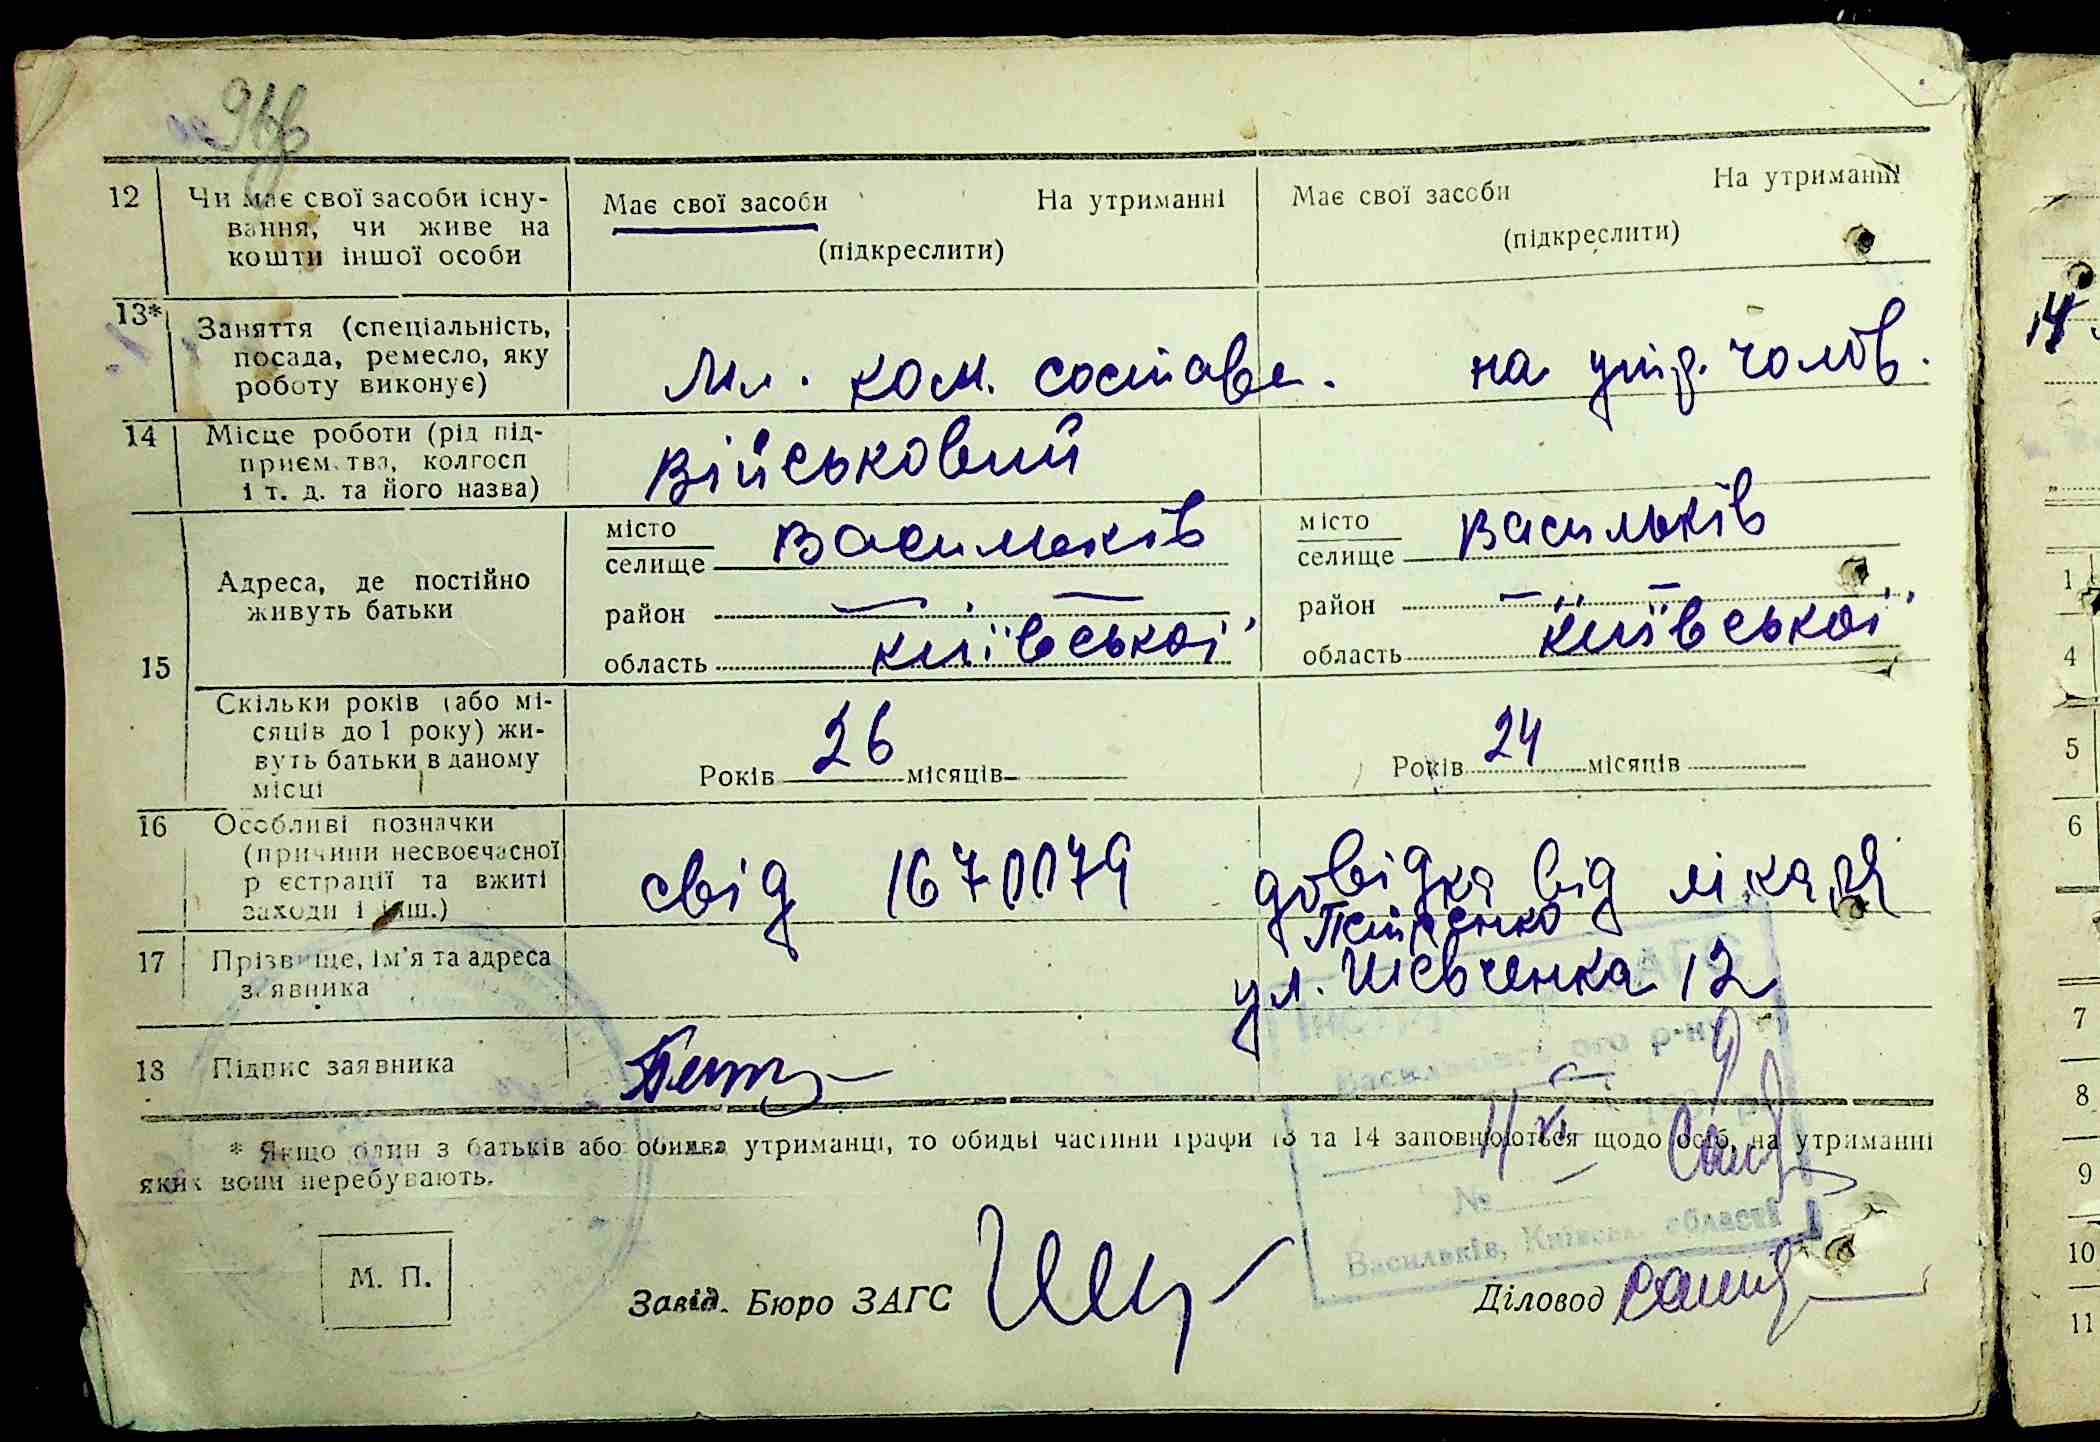 12 Чи має свої засоби існу-
вання, чи живе на
кошти іншої особи
Має свої засоби На утриманні
(підкреслити)
Має свої засоби На утриманні
(підкреслити)
13* Заняття (спеціальність,
посада, ремесло, яку
роботу виконує)
Мл. ком. состава.
на утр. чолов.
14 Місце роботи (рід під-
приємства, колгосп
і т. д. та його назва)
Військовий
15 Адреса, де постійно
живуть батьки
місто
селище Васильків
район —
область київської
місто
селище Васильків
район —
область київської
Скільки років (або мі-
сяців до 1 року) жи-
вуть батьки в даному
місці
Років 26 місяців
Років 24 місяців
16 Особливі позначки
(причини несвоєчасної
реєстрації та вжиті
заходи і інш.)
свід 1670079
довідка від лікаря
Петренко
17 Прізвище, ім'я та адреса
заявника
ул. Шевченка 12
18 Підпис заявника
* Якщо один з батьків або обидва утриманці, то обидві частини графи 13 та 14 заповнюються щодо осіб, на утриманні
яких вони перебувають.
№
Васильків, Київськ. області
М. П.
Завід. Бюро ЗАГС
Діловод
14
1
4
5
6
7
8
9
10
11